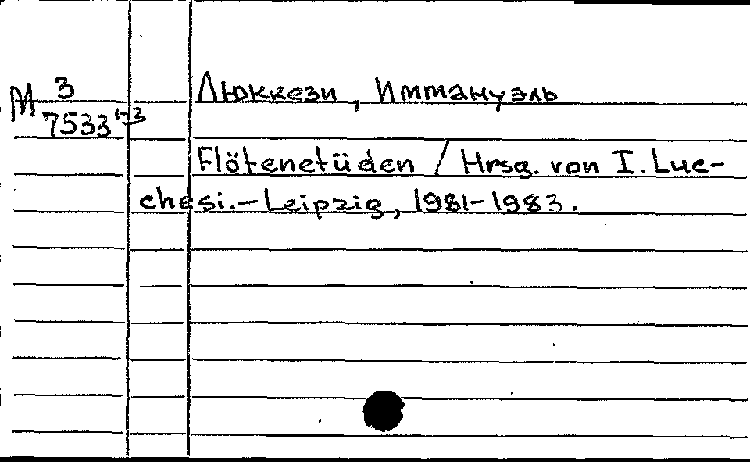 М 3
7533 1-3
Люккези, Иммануэль
Flötenetüden / Hrsg. von I. Luc-
chesi.- Leipzig, 1981-1983.